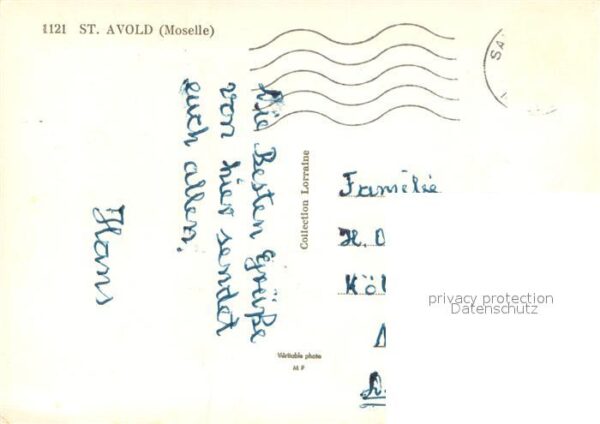 1121 ST. AVOLD (Moselle)
SA
Die Besten Grüße
von hier sendet
euch allen.
Hans
Collection Lorraine
Véritable photo
M P
Familie
H. D
Köl
privacy protection
Datenschutz